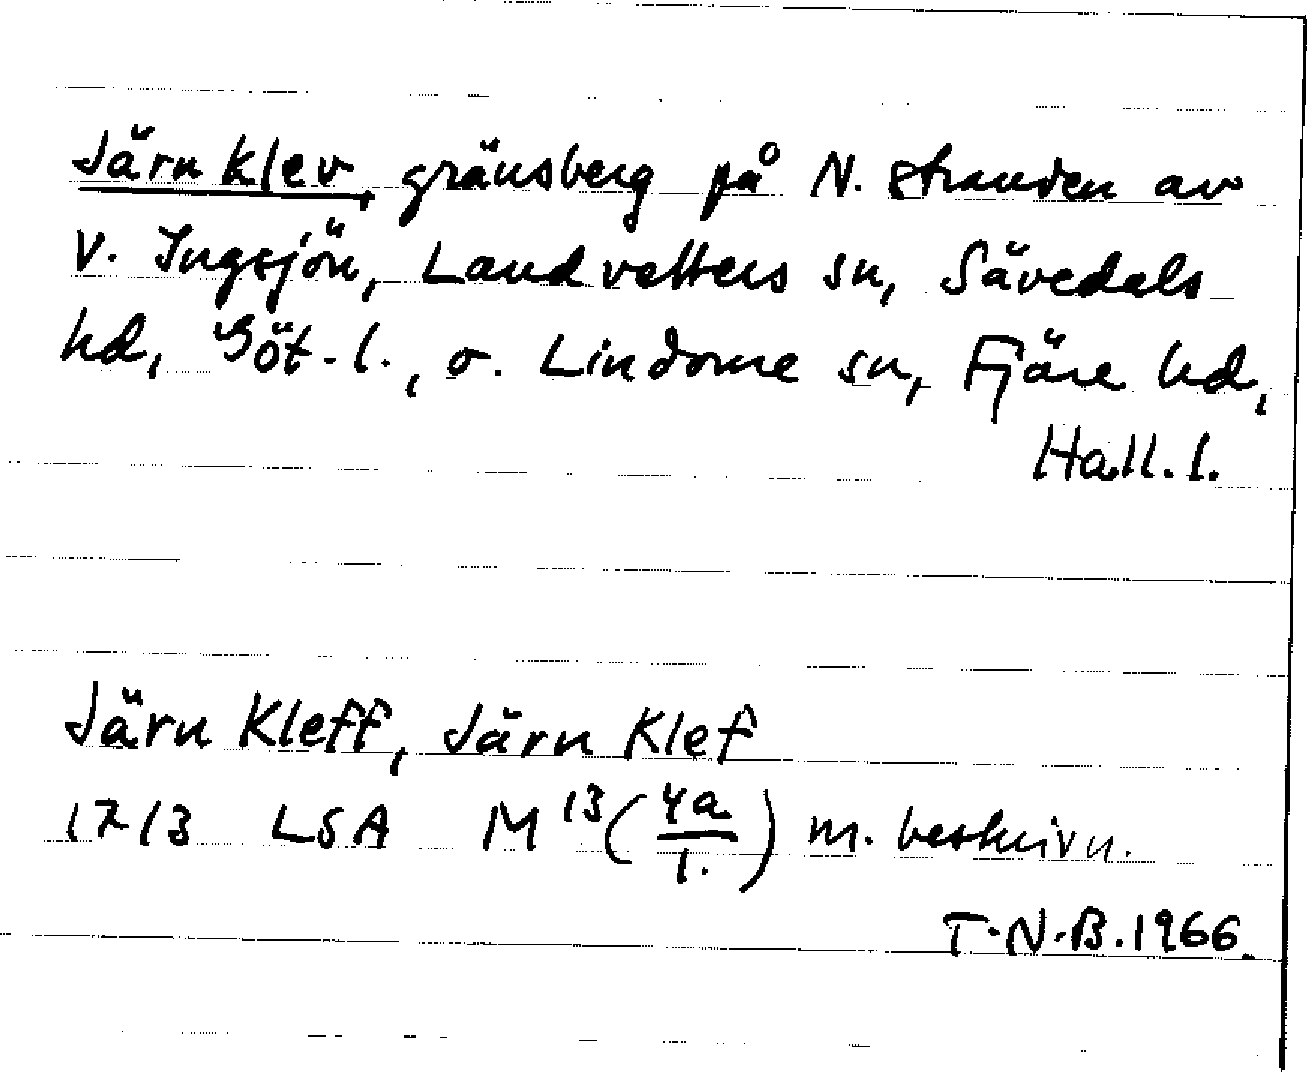 Järn Klev, gränsberg på N. stranden av
V. Ingsjön, Landvetters sn, Sävedals
hd, Göt-l., o. Lindome sn, Fjäre hd,
Hall.l.
Järn Kleff, Järn Klef
1713 LSA M¹³(4a/1.) m. beskrivn.
T.N.B.1966.